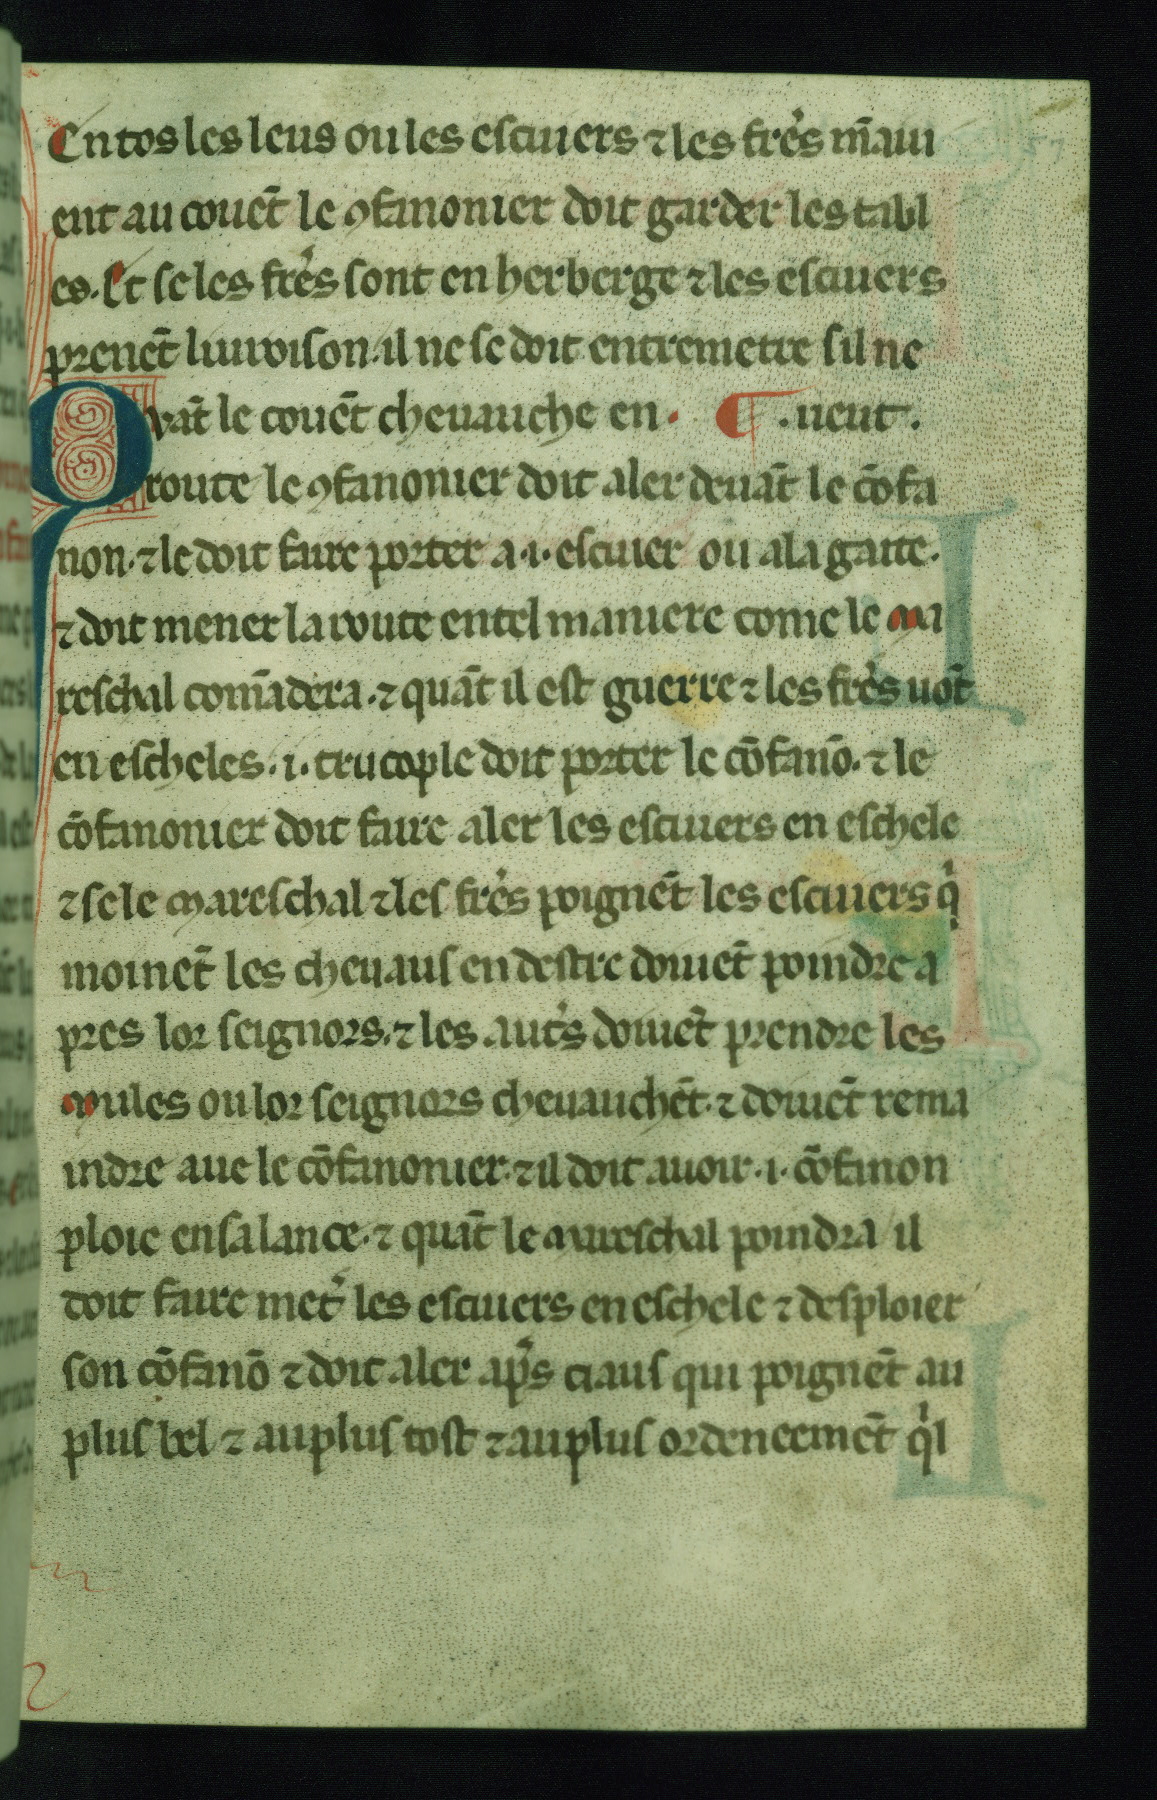 En tos les leus ou les escuiers ⁊ les frẽs m̃aui
ent au couẽt le ꝯfanonier doit garder les tabl
es. Et se les frẽs sont en herberge ⁊ les escuiers
prenẽt liuroison. il ne se doit entremetre sil ne
Qvãt le couẽt cheuauche en. ¶ .ueut.
route le ꝯfanonier doit aler deuãt le cõfa
non. ⁊ le doit faire porter a .i. escuier ou a la gaite.
⁊ doit mener la route en tel maniere come le ma
reschal comãdera. ⁊ quãt il est guerre ⁊ les frẽs uõt
en escheles. .i. trucople doit porter le cõfanõ. ⁊ le
cõfanonier doit faire aler les escuiers en eschele
⁊ se le mareschal ⁊ les frẽs poignẽt les escuiers q̃
moinẽt les cheuaus en destre doiuẽt poindre a
pres lor seignors. ⁊ les aut̃s doiuẽt prendre les
mules ou lor seignors cheuauchẽt. ⁊ doiuẽt rema
indre aue le cõfanonier. ⁊ il doit auoir .i. cõfanon
ploie en sa lance. ⁊ quãt le mareschal poindra il
doit faire met̃ les escuiers en eschele ⁊ desploier
son cõfanõ ⁊ doit aler ap̃s ciaus qui poignẽt au
plus bel ⁊ au plus tost ⁊ au plus ordeneemẽt q̃l